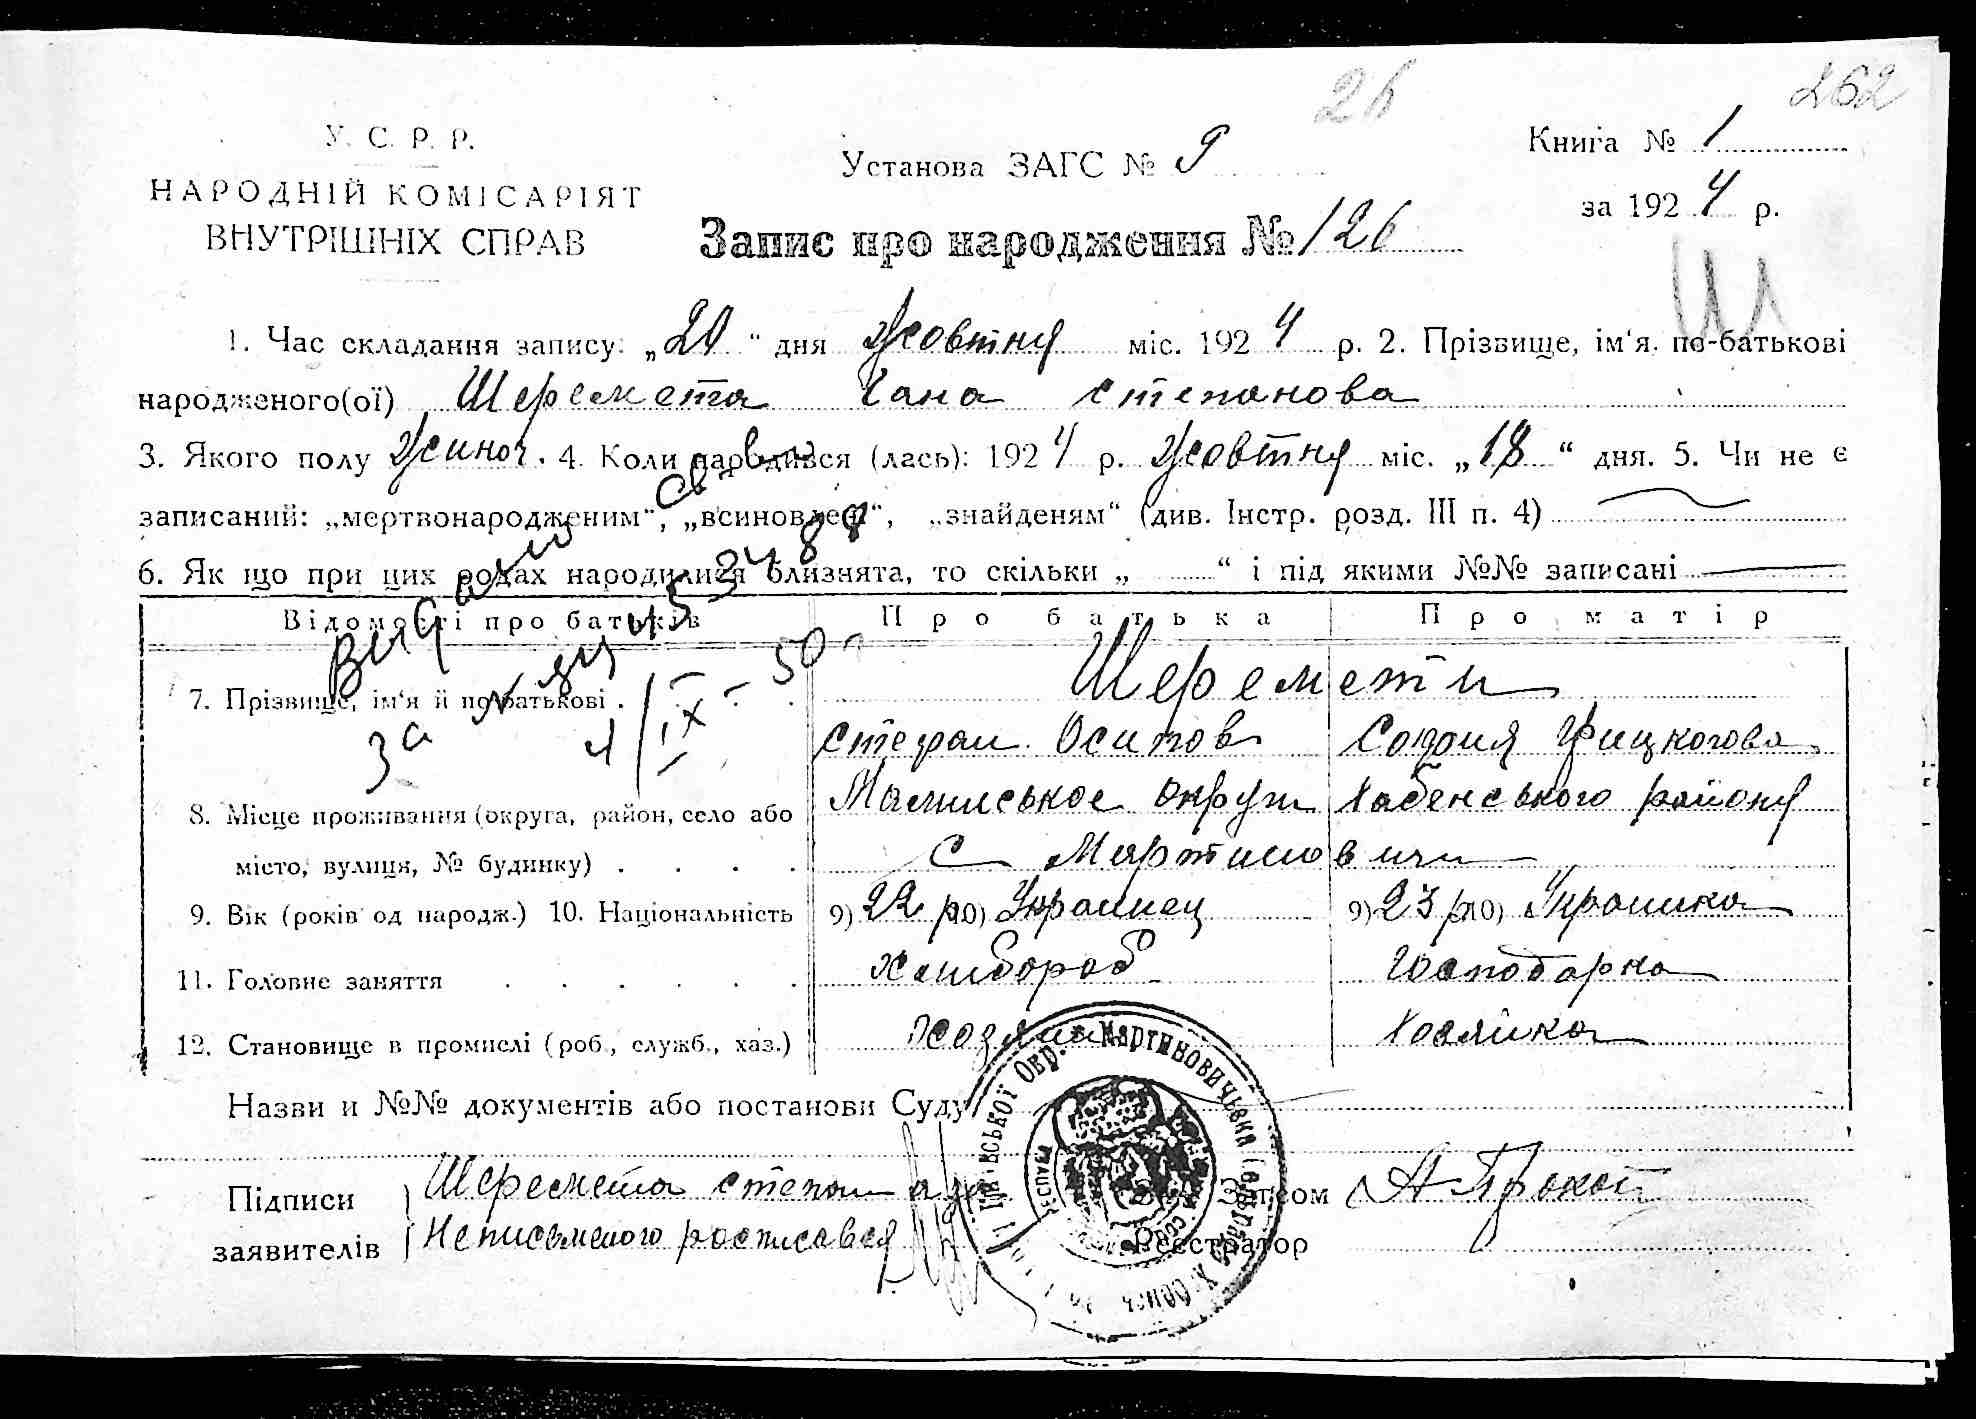 26
262
У. С. Р. Р.
НАРОДНІЙ КОМІСАРІЯТ
ВНУТРІШНІХ СПРАВ
Установа ЗАГС № 9
Книга № 1
за 1924 р.
Запис про народження № 126
Ш
1. Час складання запису: „20“ дня Жовтня міс. 1924 р. 2. Прізвище, ім‘я, по-батькові
народженого(ої) Шеремета Гана Степанова
3. Якого полу Жиноч. 4. Коли народився (лась): 1924 р. Жовтня міс. „18“ дня. 5. Чи не є
записаний: „мертвонародженим“, „всиновлен“, „знайденям“ (див. Інстр. розд. III п. 4)
6. Як що при цих родах народилися близнята, то скільки „ “ і під якими №№ записані
Видано св-во
за № ЯЦ
4/IX-50
Відомості про батьків Про батька Про матір
7. Прізвище, ім‘я й по-батькові . . . . Шеремети
Степан Осипов София Грицкогова
8. Місце проживання (округа, район, село або Малинськое округи Хабенського району
місто, вулиця, № будинку) . . . . с Мартиновичи
9. Вік (років од народж.) 10. Національність 9) 22 р 10) Украинец 9) 23 р 10) Украинка
11. Головне заняття . . . . . . Хлибороб Господарка
12. Становище в промислі (роб., служб., хаз.) Хозяин Хозяйка
Назви и №№ документів або постанови Суду
Підписи Шеремета Степан а за Зав. Загсом А Прокоп
заявителів Неписьменого росписався Реєстратор
Мартиновичівска